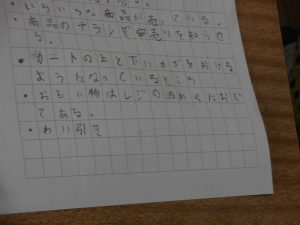 ・いろいろな商品が売っている。
・商品のチラシで安売りを知らせ
る。
・カートの上と下にカゴをおける
ようになっているところ
・おもい物はレジの近くにおい
てある。
・わり引き